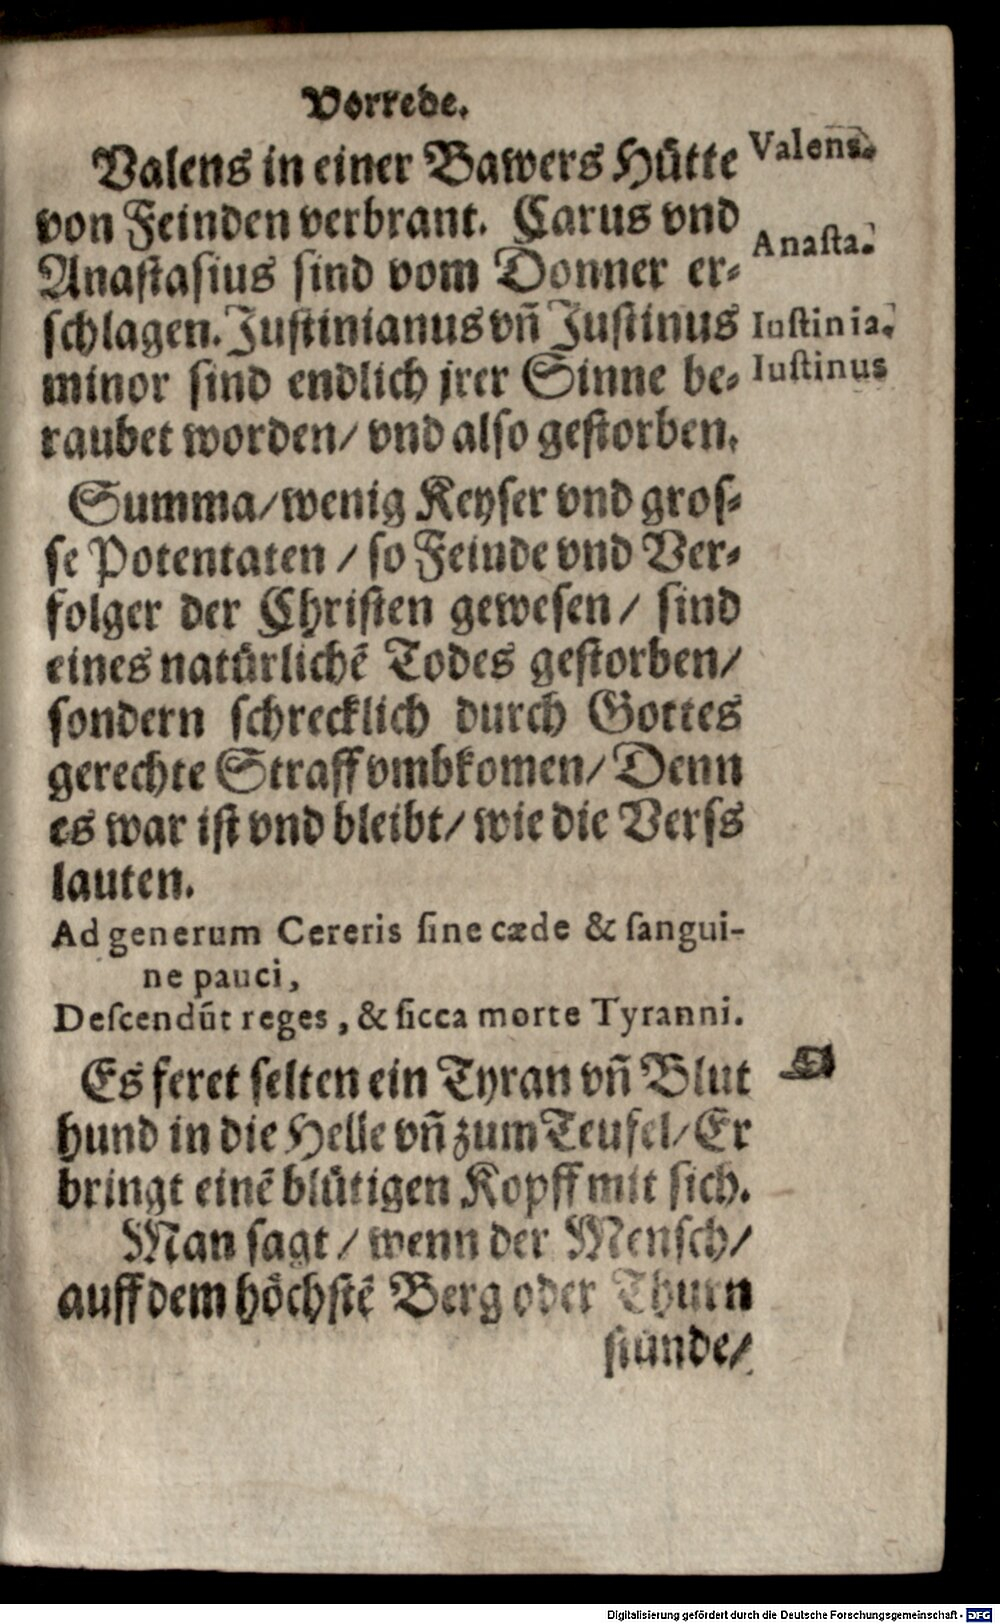 Vorrede.
Valens in einer Bawers Hütte
Valens.
von Feinden verbrant. Carus vnd
Anastasius sind vom Donner er⸗
Anaſta.
schlagen. Justinianus vn̄ Justinus
Iuſtinia.
minor sind endlich jrer Sinne be⸗
Iuſtinus
raubet worden/ vnd also gestorben.
Summa/ wenig Keyser vnd gros⸗
se Potentaten / so Feinde vnd Ver⸗
folger der Christen gewesen/ sind
eines natürlichē Todes gestorben/
sondern schrecklich durch Gottes
gerechte Straff vmbkomen/ Denn
es war ist vnd bleibt/ wie die Verss
lauten.
Ad generum Cereris ſine cæde & ſangui-
ne pauci,
Deſcendūt reges, & ſicca morte Tyranni.
Es feret selten ein Tyran vn̄ Blut
hund in die Helle vn̄ zum Teufel/ Er
bringt einē blütigen Kopff mit sich.
Man sagt / wenn der Mensch/
auff dem höchstē Berg oder Thurn
stünde/
Digitalisierung gefördert durch die Deutsche Forschungsgemeinschaft - DFG